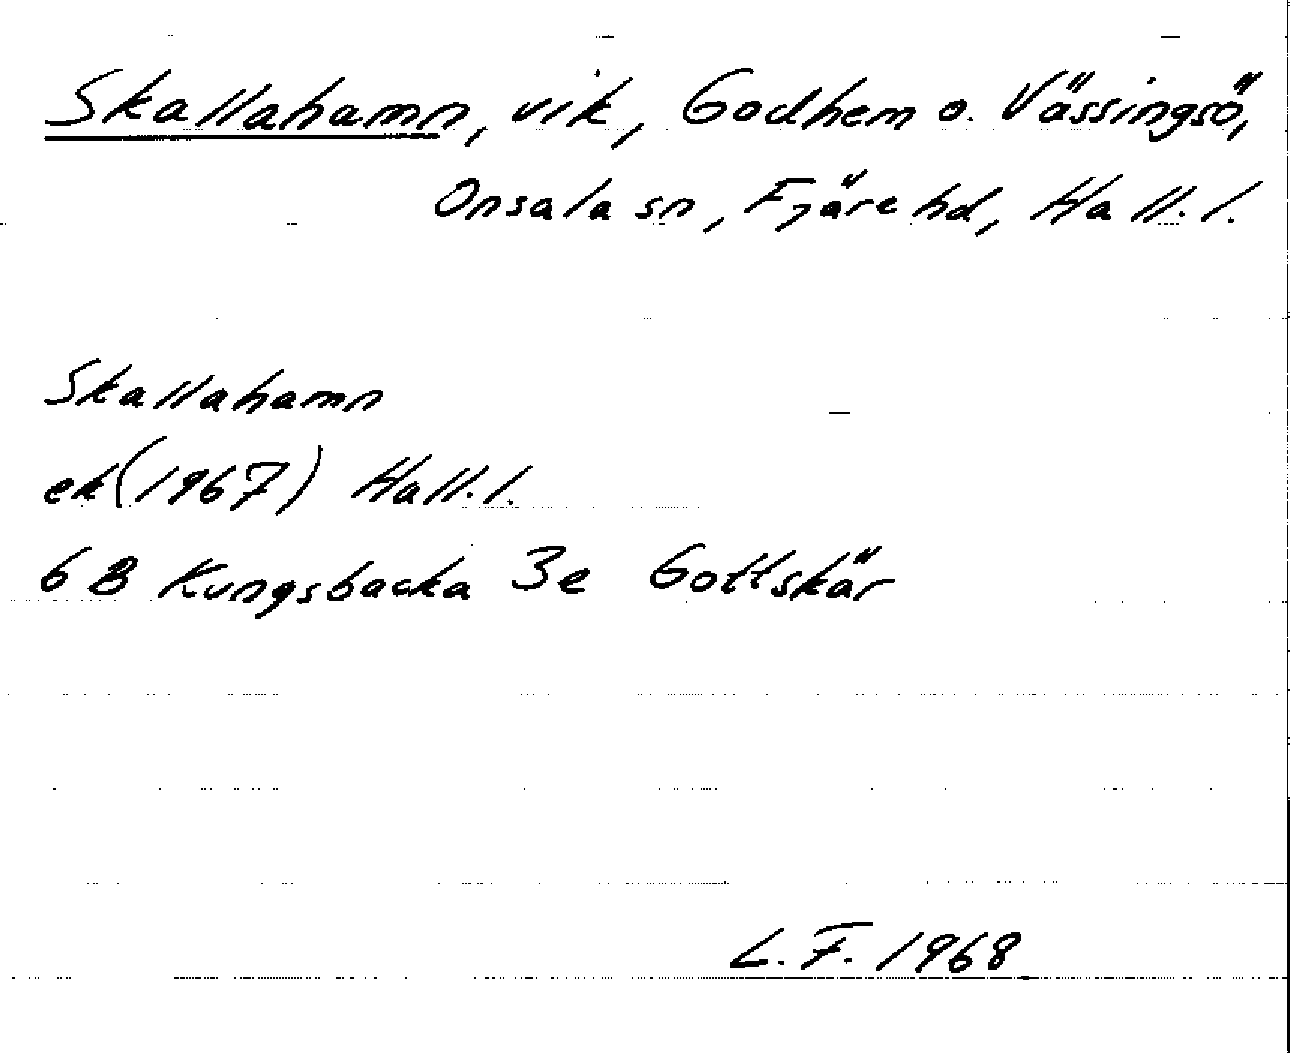 Skallahamn, vik, Godhem o. Vässingsö,
Onsala sn, Fjäre hd, Hall. l.
Skallahamn
ek (1967) Hall. l.
6 B Kungsbacka 3e Gottskär
L. F. 1968